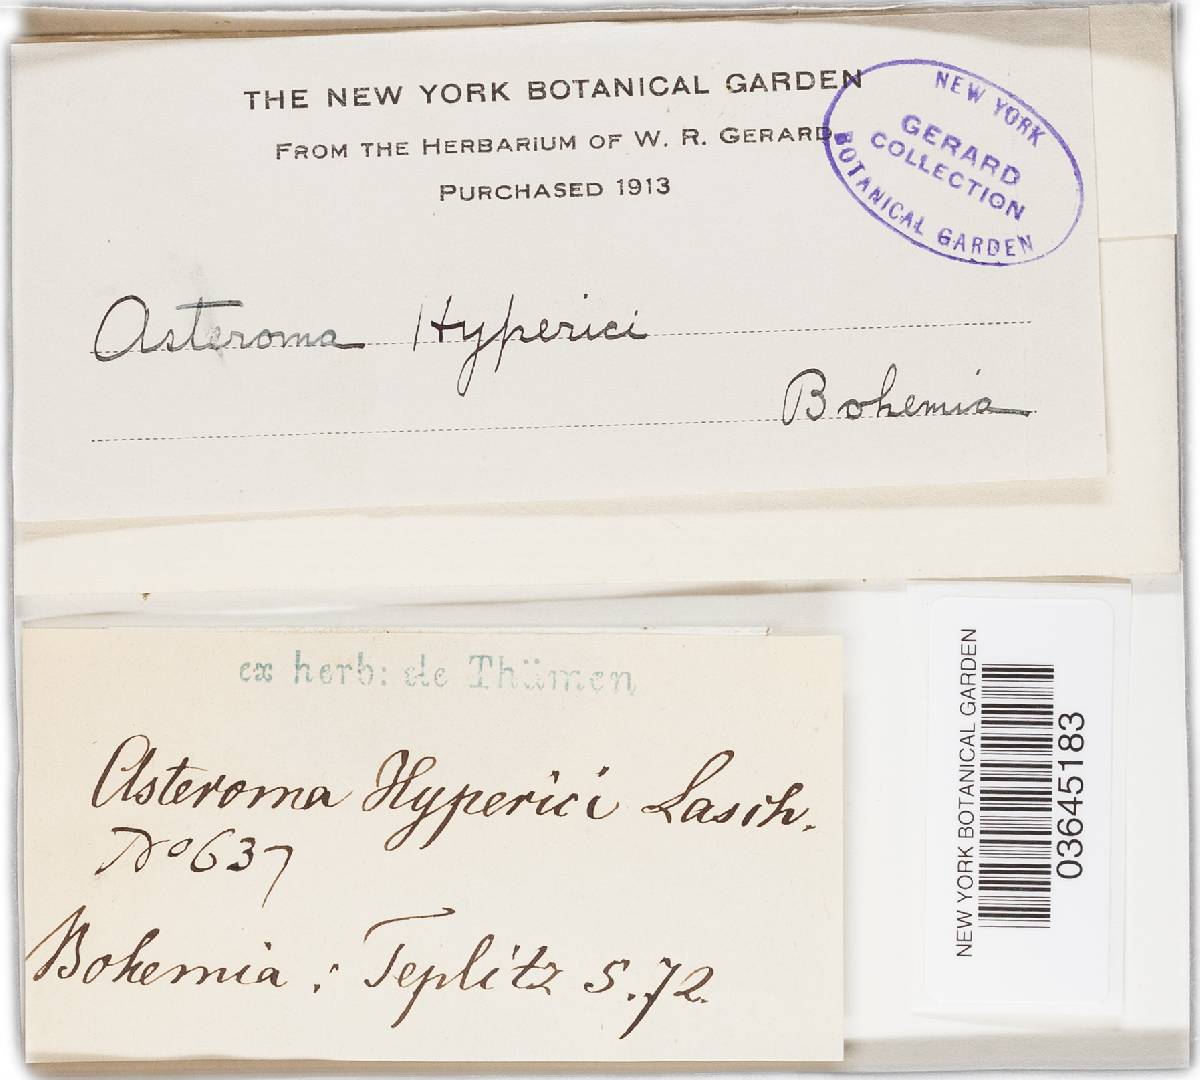 THE NEW YORK BOTANICAL GARDEN
FROM THE HERBARIUM OF W. R. GERARD
PURCHASED 1913
NEW YORK
GERARD
COLLECTION
BOTANICAL GARDEN
Asteroma Hyperici
Bohemia
ex herb: de Thümen
Asteroma Hyperici Lasch.
No 637
Bohemia : Teplitz 5.72.
NEW YORK BOTANICAL GARDEN
03645183